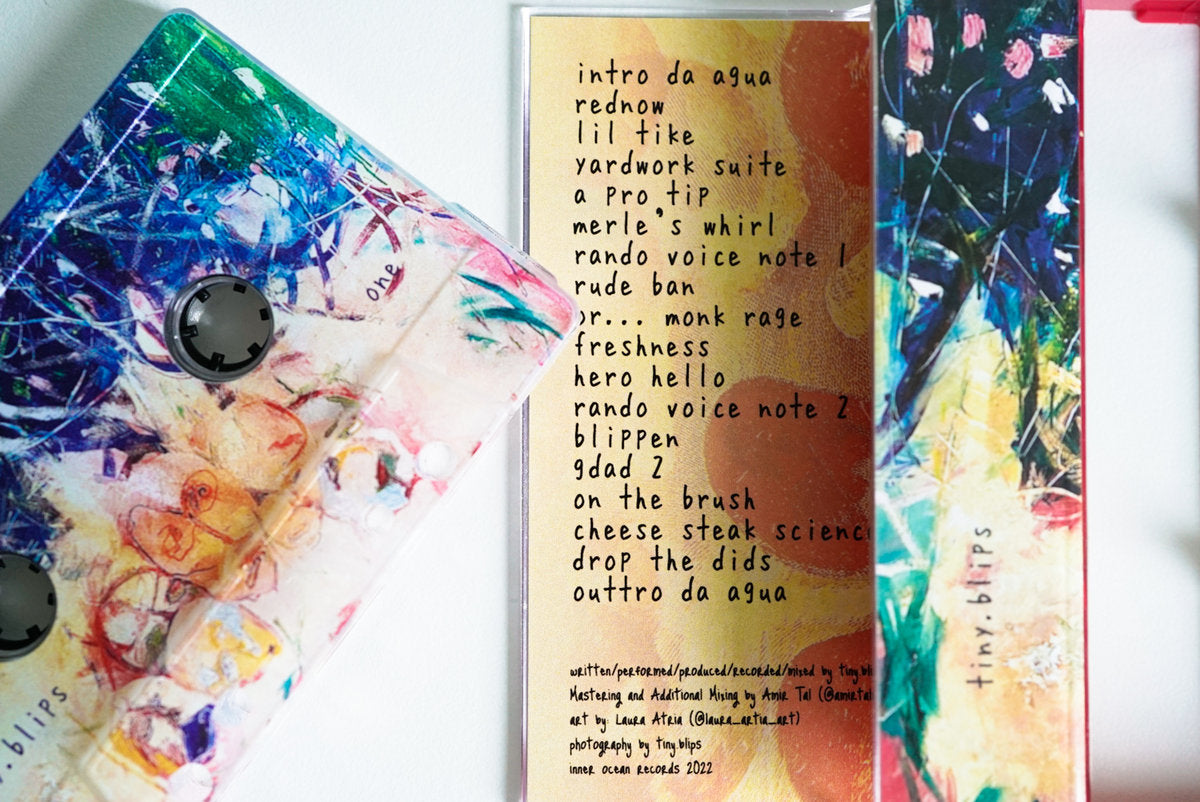 one
.blips
intro da agua
rednow
lil tike
yardwork suite
a pro tip
merle's whirl
rando voice note 1
rude ban
or... monk rage
freshness
hero hello
rando voice note 2
blippen
gdad 2
on the brush
cheese steak scienc
drop the dids
outtro da agua
written/performed/produced/recorded/mixed by tiny.bli
Mastering and Additional Mixing by Amir Tal (@amirtal
art by: Laura Atria (@laura_artia_art)
photography by tiny.blips
inner ocean records 2022
tiny.blips